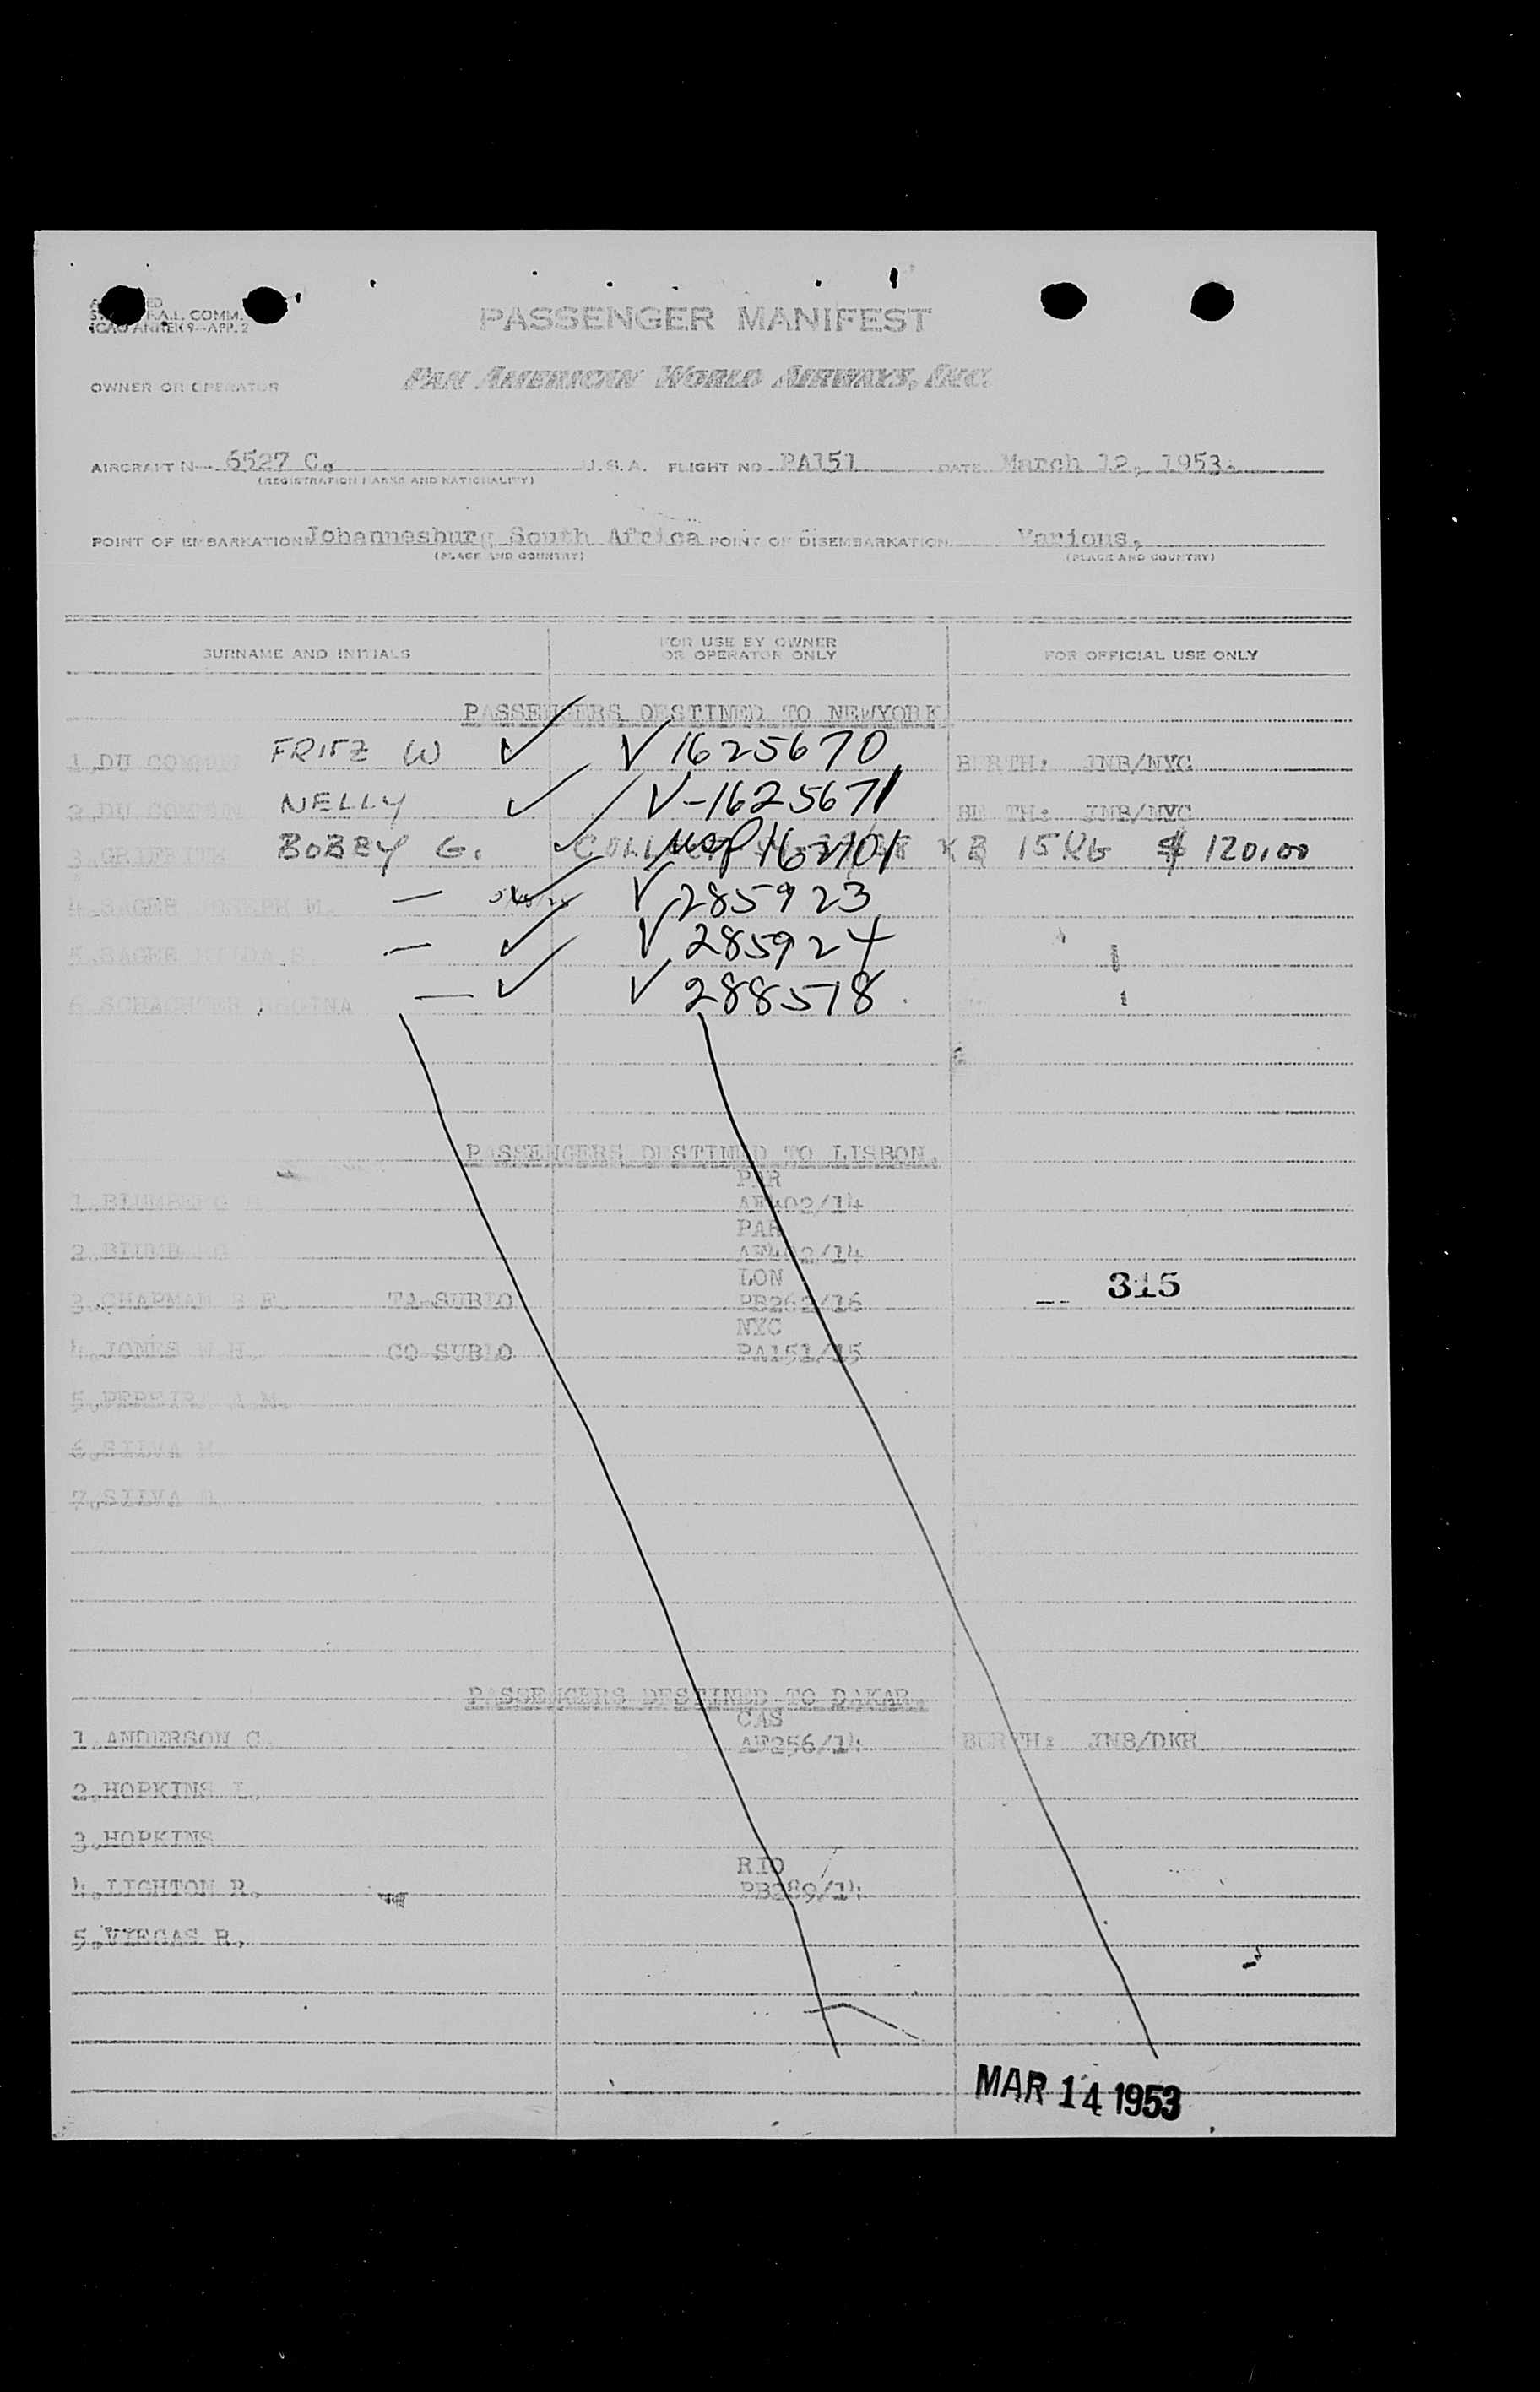 F.A.L. COMM.
ICAO ANNEX 9—APP. 2
PASSENGER MANIFEST
OWNER OR OPERATOR PAN AMERICAN WORLD AIRWAYS, INC.
AIRCRAFT N— 6527 C. U.S.A. FLIGHT NO. PA151 DATE March 12, 1953.
(REGISTRATION MARKS AND NATIONALITY)
POINT OF EMBARKATION Johannesburg South Africa POINT OF DISEMBARKATION Various.
(PLACE AND COUNTRY) (PLACE AND COUNTRY)
SURNAME AND INITIALS FOR USE BY OWNER OR OPERATOR ONLY FOR OFFICIAL USE ONLY
PASSENGERS DESTINED TO NEWYORK.
1.DU COMMUN FRITZ W V 1625670 BERTH: JNB/NYC
2.DU COMMUN NELLY V-1625671 BERTH: JNB/NYC
3. BOBBY G. 15 $ 120.00
4.SAGER JOSEPH M. — V 285923
5.SAGER — V 285924
6.SCHACHTER REGINA — V 288518
PASSENGERS DESTINED TO LISBON.
PAR
1.BLUMBERG AF402/14
PAR
2.BLUMBERG AF402/14
LON
3.CHAPMAN B E. TA-SUBLO PB262/16 315
NYC
4.JONES W.H. CO SUBLO PA151/15
5.PEREIRA A.M.
6.SILVA M.
7.SILVA
PASSENGERS DESTINED TO DAKAR.
CAS
1.ANDERSON C. AF256/14 BERTH: JNB/DKR
2.HOPKINS L.
3.HOPKINS
RIO
4.LIGHTON R. PB289/14
5.VIEGAS R.
MAR 14 1953